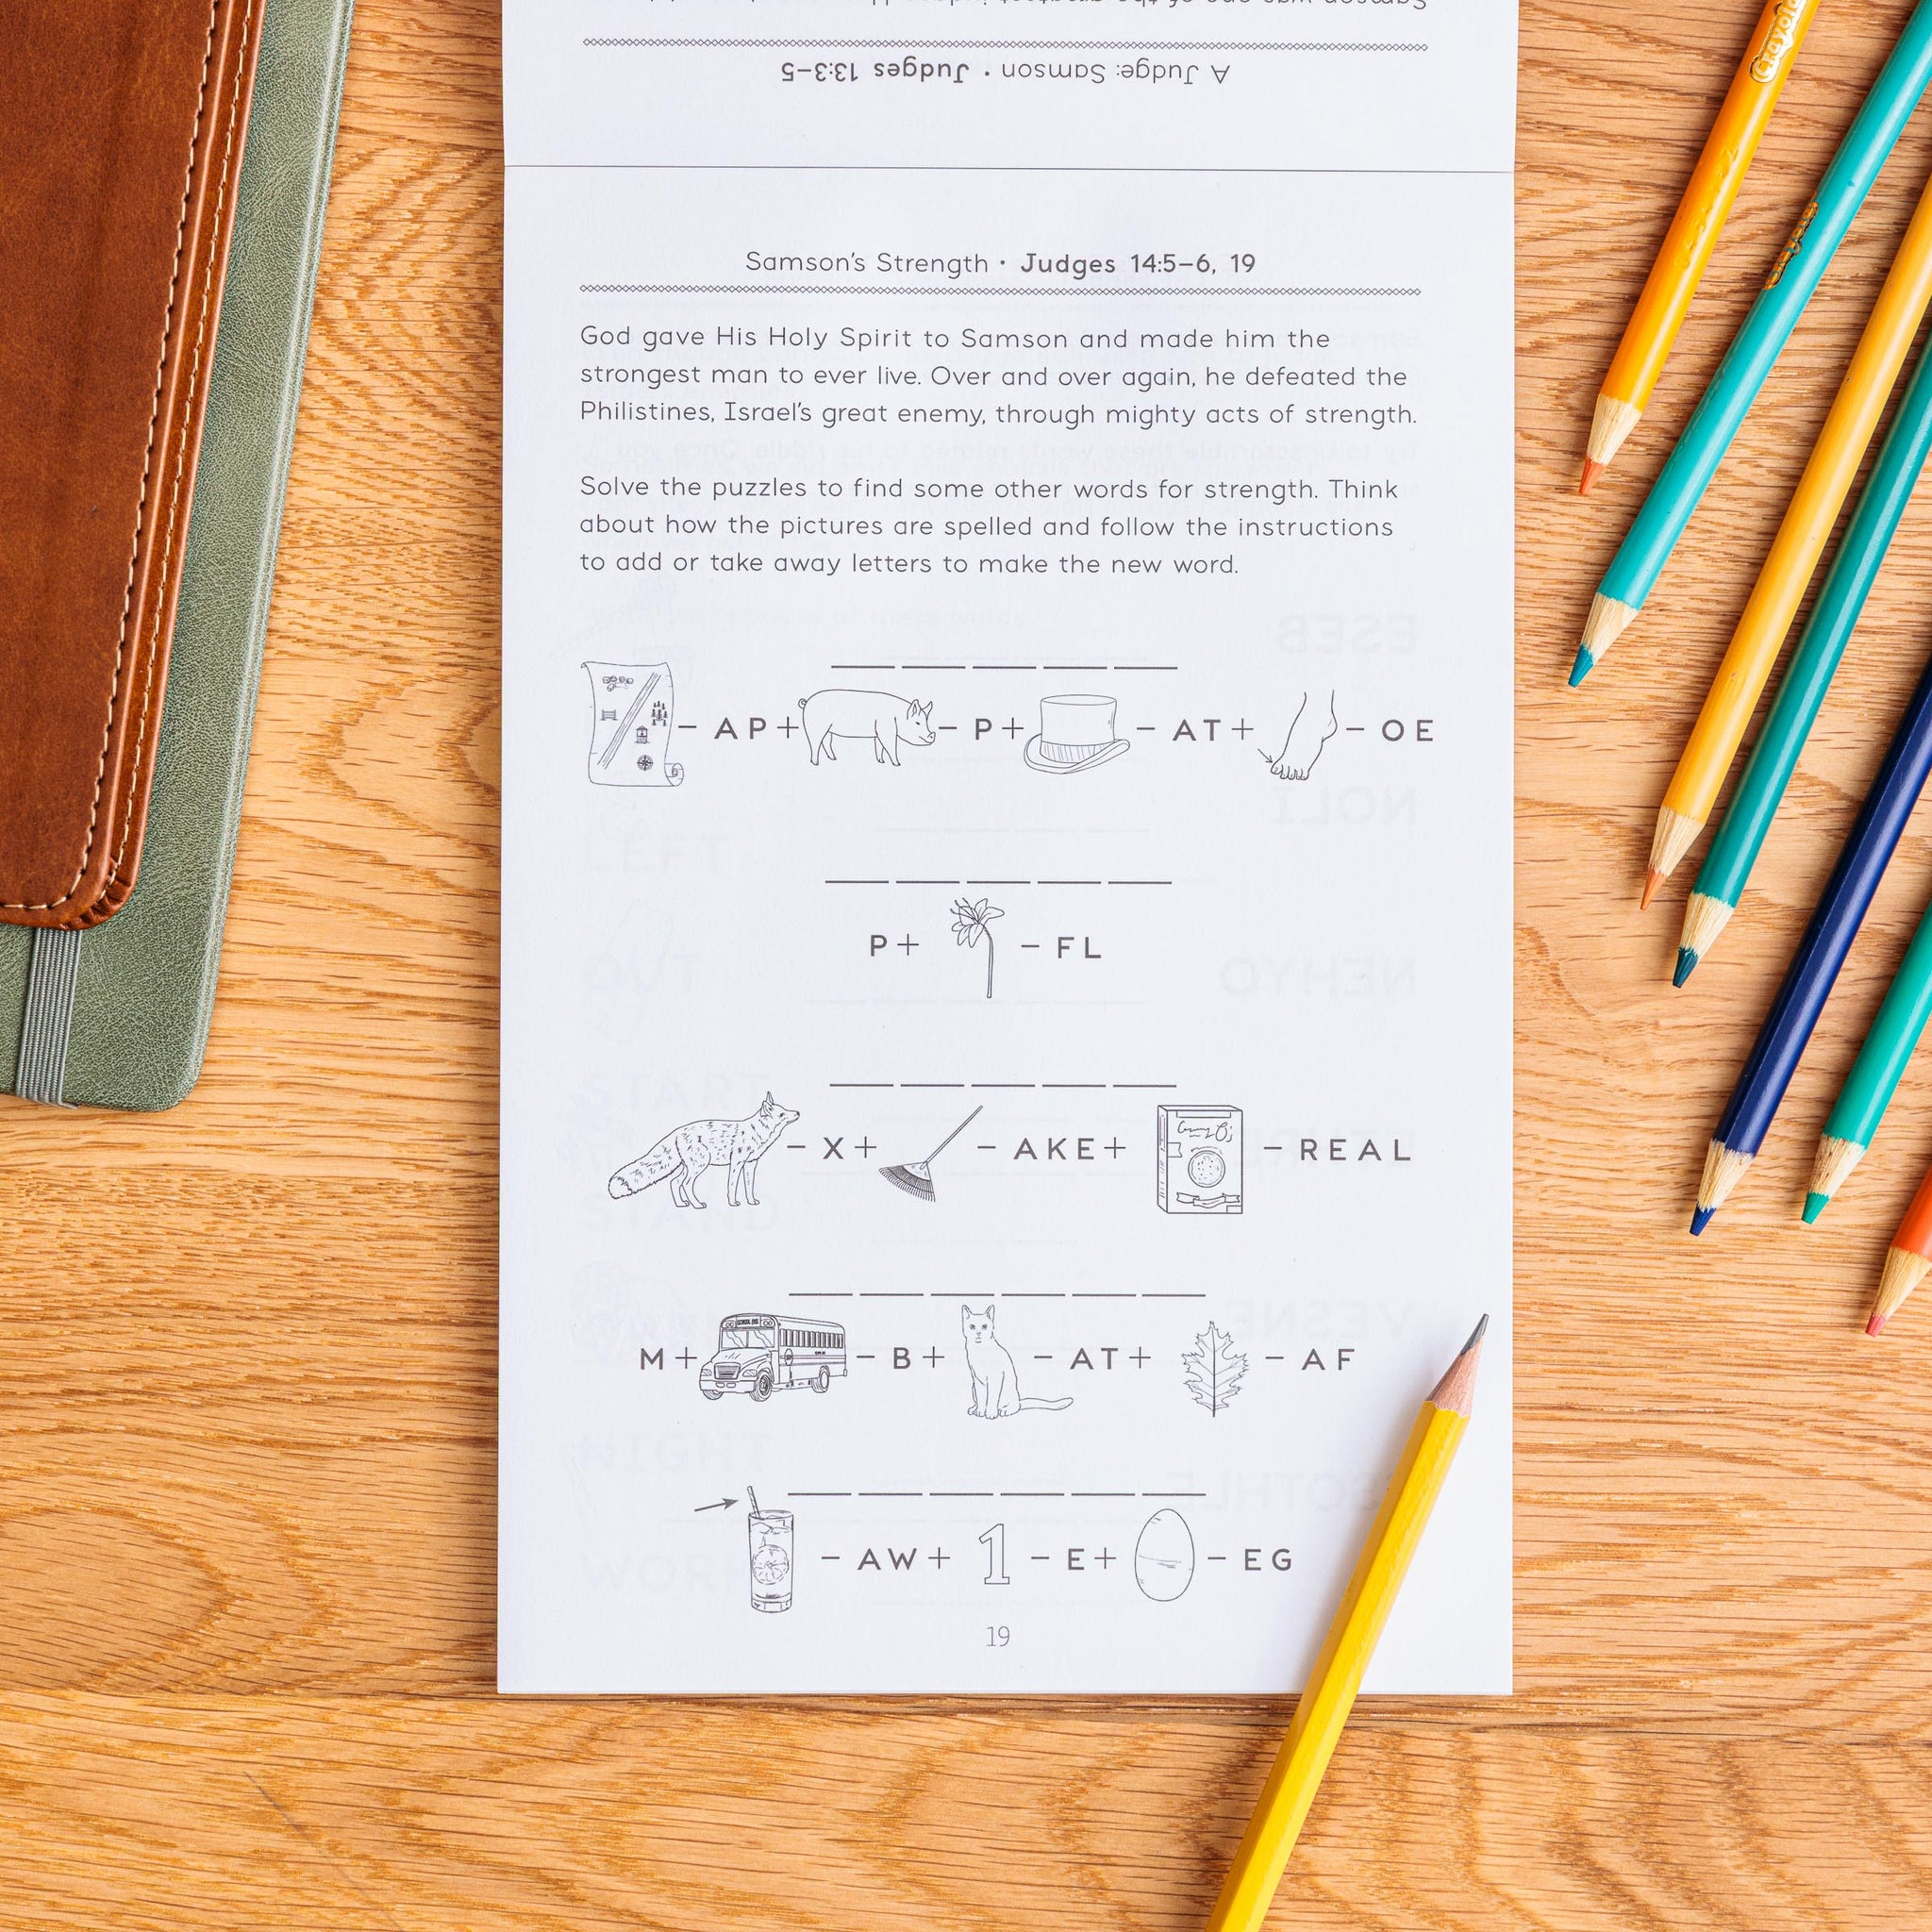 A Judge: Samson • Judges 13:3–5
Samson's Strength • Judges 14:5–6, 19
God gave His Holy Spirit to Samson and made him the
strongest man to ever live. Over and over again, he defeated the
Philistines, Israel's great enemy, through mighty acts of strength.
Solve the puzzles to find some other words for strength. Think
about how the pictures are spelled and follow the instructions
to add or take away letters to make the new word.
– AP + – P + – AT + – OE
P + – FL
– X + – AKE + – REAL
M + – B + – AT + – AF
SCHOOL BUS
– AW + 1 – E + – EG
19
Crayola